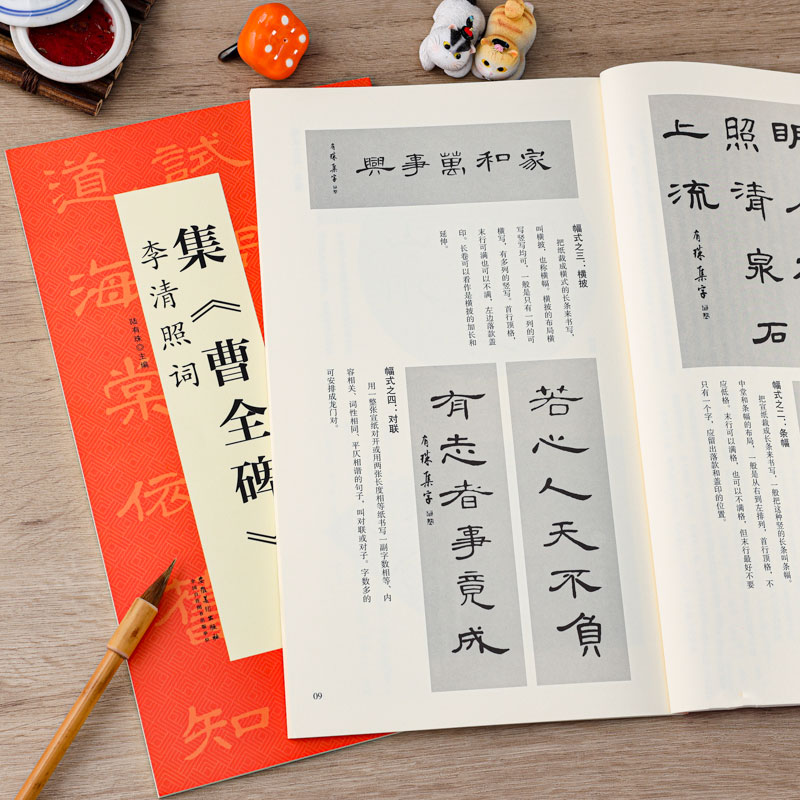 試
道海棠依舊知
集《曹全碑》
李清照词
陆有珠◎主编
安徽美术出版社
全国百佳图书出版单位
家和萬事興
有珠集字
幅式之三：横披
把纸裁成横式的长条来书写，
叫横披，也称横幅。横披的布局横
写竖写均可，一般是只有一列的可
横写，有多列的竖写。首行顶格，
末行可满也可以不满，左边落款盖
印。长卷可以看作是横披的加长和
延伸。
苦心人天不負
有志者事竟成
有珠集字
幅式之四：对联
用一整张宣纸对开或用两张长度相等纸书写一副字数相等、内
容相关、词性相同、平仄相谐的句子，叫对联或对子。字数多的
可安排成龙门对。
09
明
照清泉石
上流
有珠集字
幅式之二：条幅
把宣纸裁成长条来书写，一般把这种竖的长条叫条幅。
中堂和条幅的布局，一般是从右到左排列，首行顶格，不
应低格，末行可以满格，也可以不满格，但末行最好不要
只有一个字，应留出落款和盖印的位置。